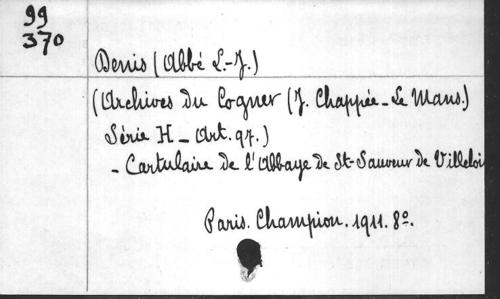 99
370
Denis (Abbé L.-J.)
(Archives du Cogner (J. Chappée - Le Mans.)
Série H - Art. 97.)
- Cartulaire de l'Abbaye de St-Sauveur de Villeloi
Paris. Champion. 1911. 8º.